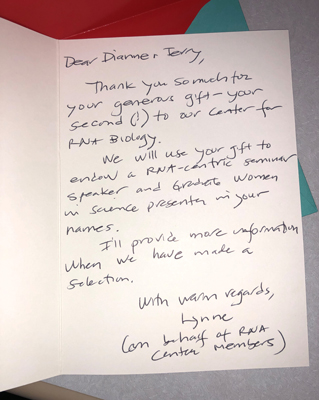 Dear Dianne & Jerry,
Thank you so much for
your generous gift – your
second (!) to our Center for
RNA Biology.
We will use your gift to
endow a RNA-centric seminar
speaker and Graduate Women
in Science presenter in your
names.
I'll provide more information
when we have made a
selection.
With warm regards,
Lynne
(on behalf of RNA
Center Members)